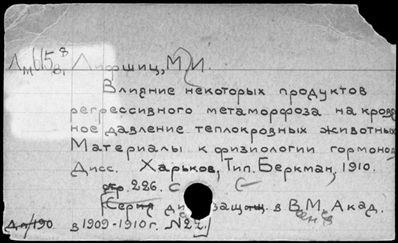 Лифшиц, М. И.
Влияние некоторых продуктов
регрессивного метаморфоза на кровя-
ное давление теплокровных животных
Материалы к физиологии гормонов
Дисс. Харьков, Тип. Беркман, 1910.
стр. 226. С
[Серия дис защ. в В. М. Акад.
Дп/190 в 1909-1910 г. №22]